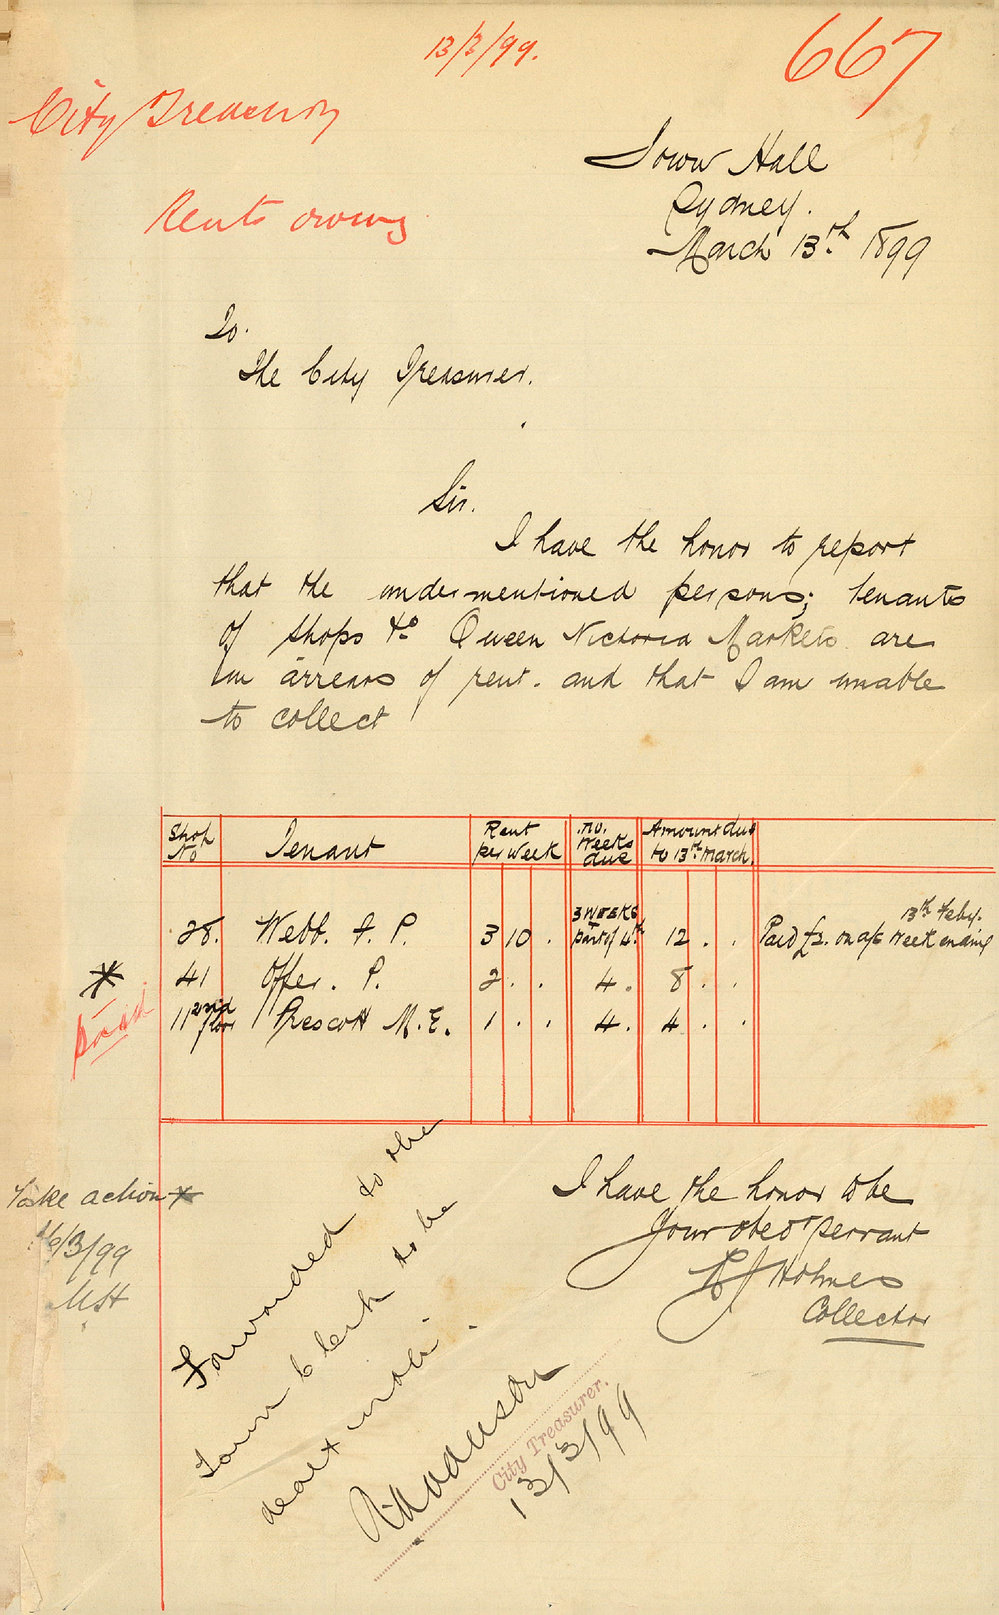 13/3/99.
667
City Treasury
Town Hall
Sydney.
March 13th 1899
Rents owing
To.
The City Treasurer.
Sir.
I have the honor to report
that the undermentioned persons; tenants
of shops &c Queen Victoria Markets are
in arrears of rent. and that I am unable
to collect
Shop No Tenant Rent per week No. Weeks due Amount due to 13th March
28. Webb. F. P. 3 10 . 3 weeks part of 4th 12 . . Paid £2. on a/c week ending 13th Feby.
* 41 Offer. P. 2 . . 4. 8 . .
paid
11 2nd floor Prescott M. E. 1 . . 4. 4 . .
I have the honor to be
Your obedt servant
Holmes
Collector
Take action *
16/3/99
Forwarded to the
Town Clerk to be
dealt with.
City Treasurer.
13/3/99